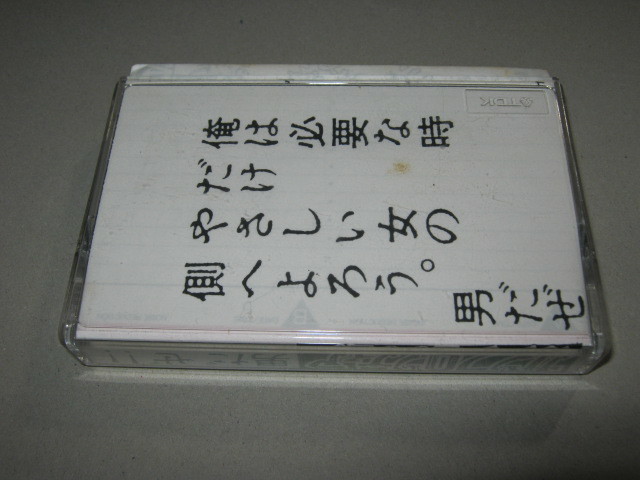 俺は必要な時
だけ
やさしい女の
側へよろう。
男だぜ
TDK